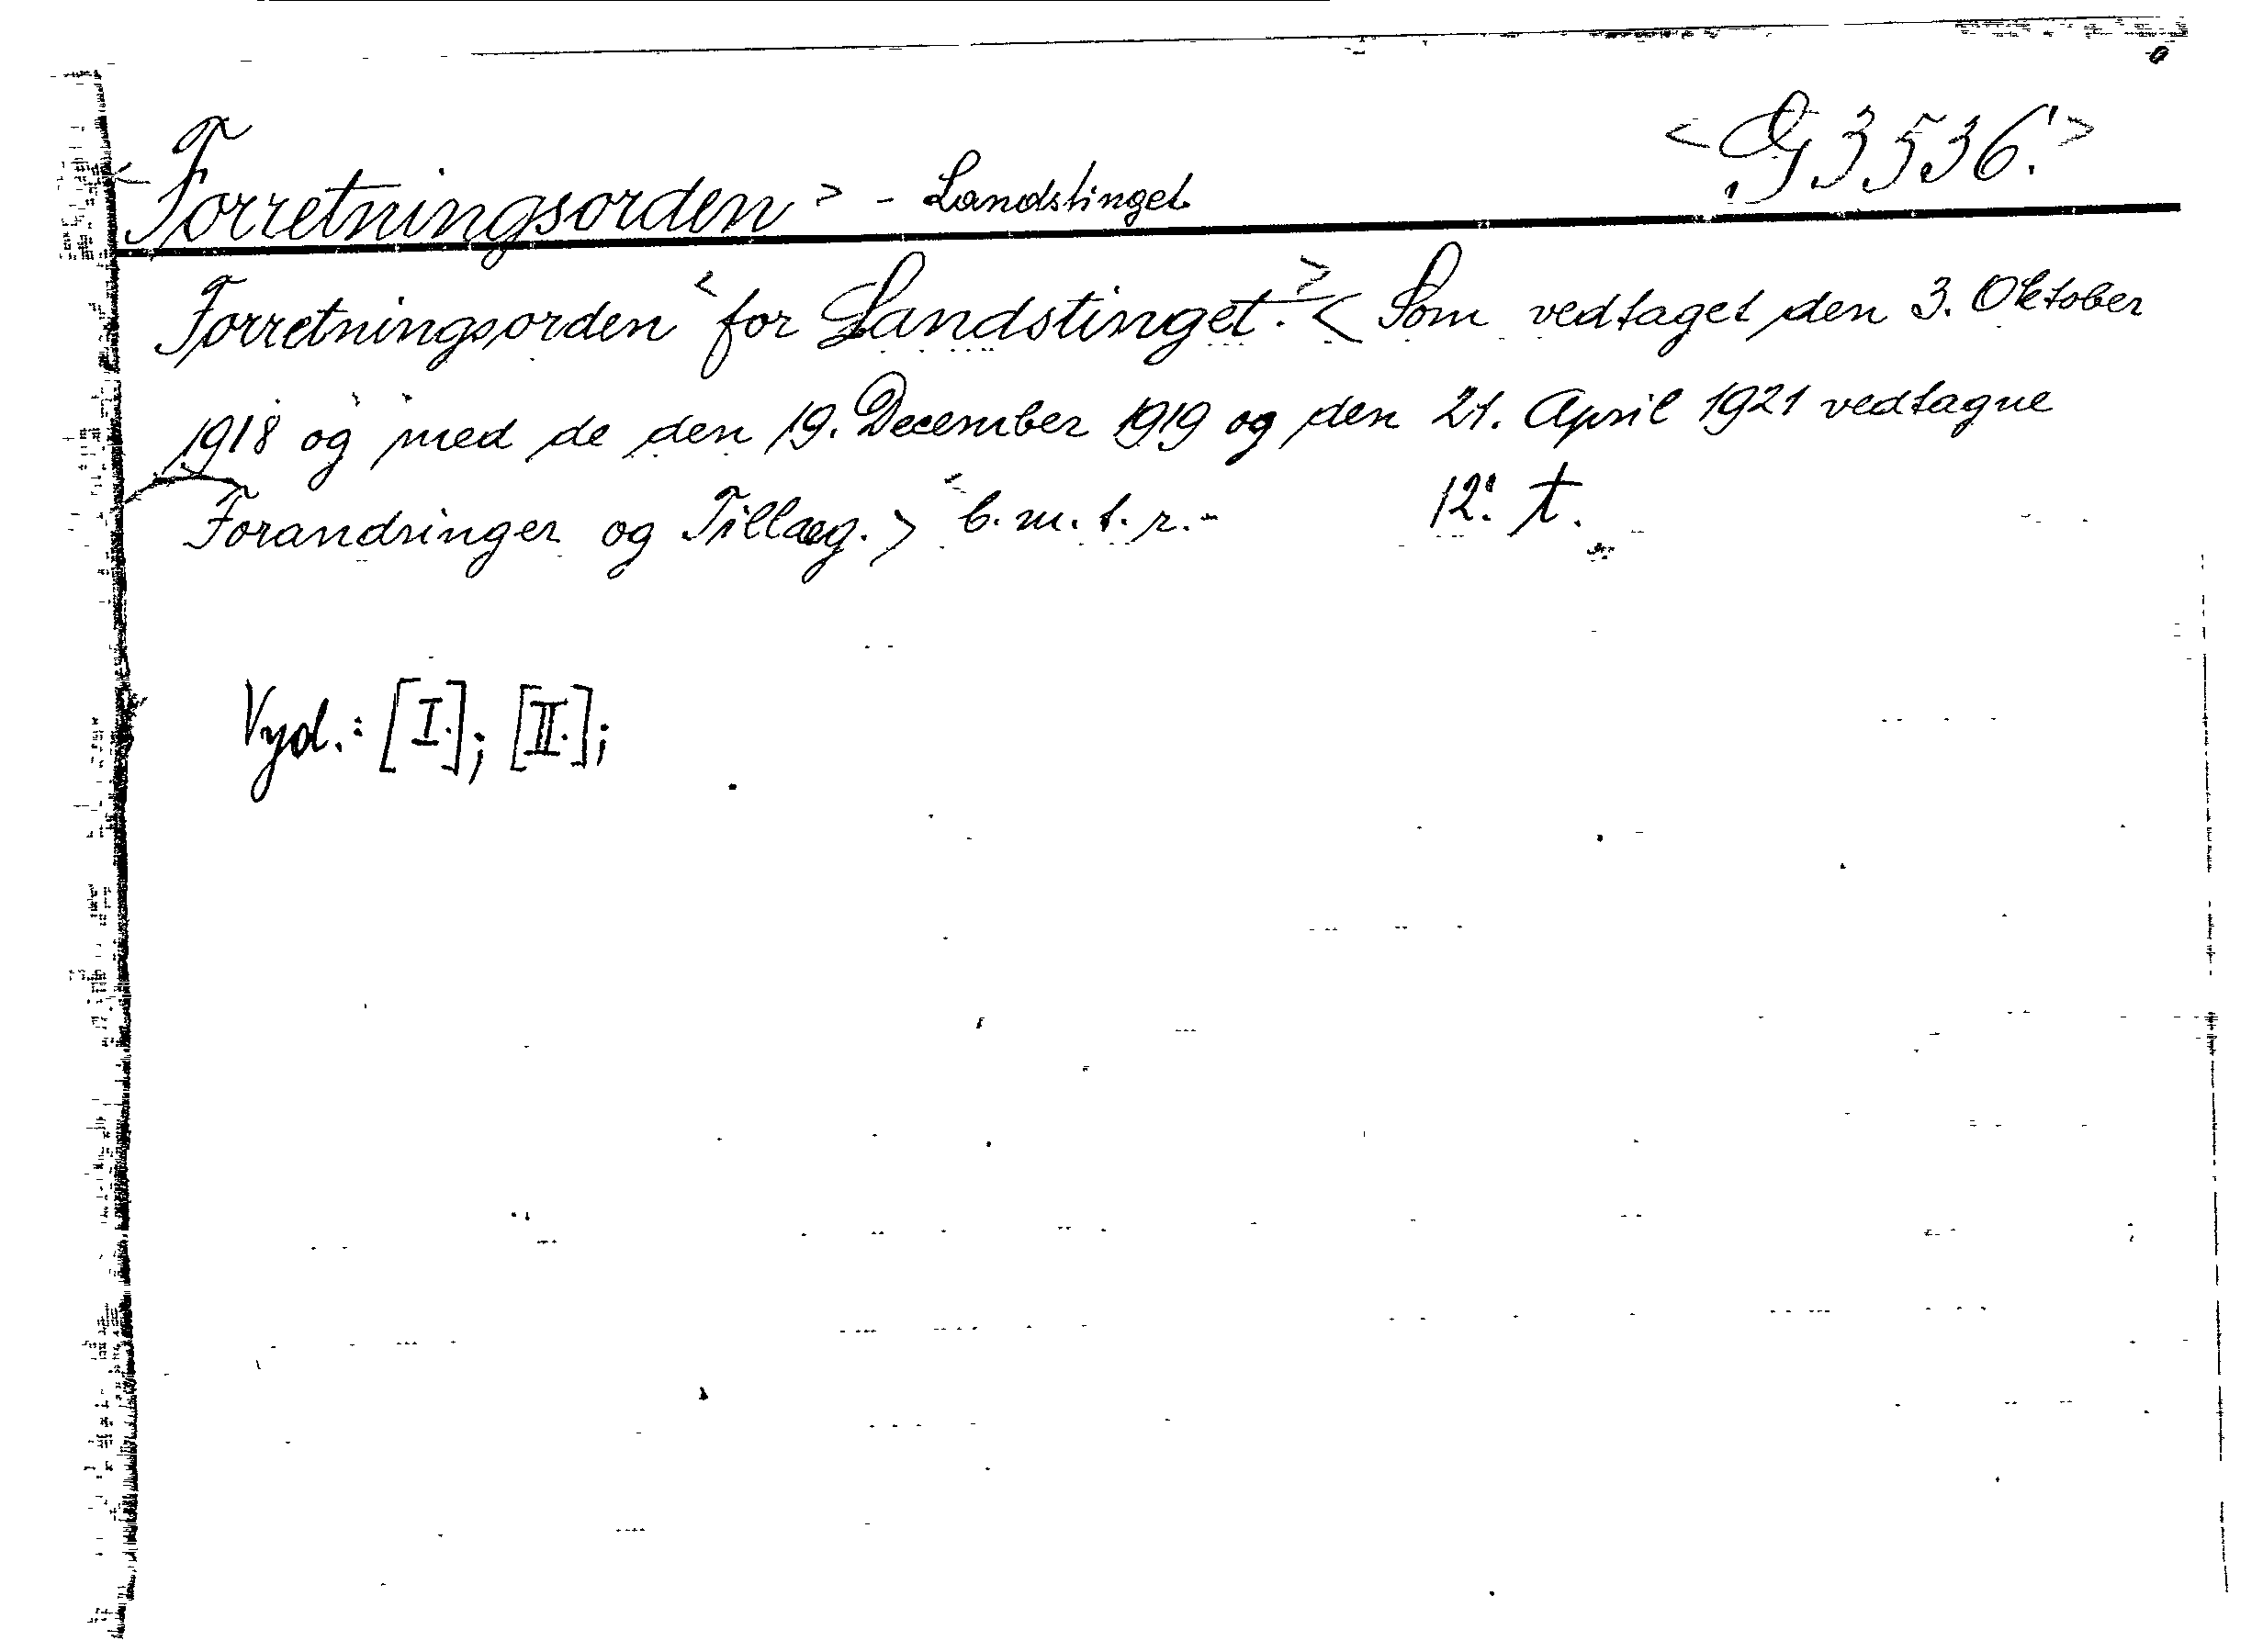 <Forretningsorden> - Landstinget
<G 3536.>
Forretningsorden <for Landstinget.> <Som vedtaget den 3. Oktober
1918 og med de den 19. December 1919 og den 21. April 1921 vedtagne
Forandringer og Tillæg.> b.m.t.r.- 12° t.
Vyd.: [I.]; [II.];